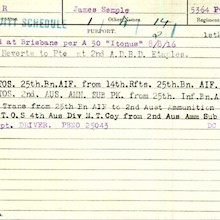 R James Kemple 5364 P
UTY SCHEDULE
PURPORT
d at Brisbane per A 50 "Itonus" 8/8/16
Reverts to Pte at 2nd A.D.B.D. Etaples.
TOS. 25th.Bn.AIF. from 14th.Rfts. 25th.Bn. AIF.
TOS. 2nd. AUS. AMM. SUB PK. from 25th. Inf.Bn.A
Trans from 25th Bn AIF to 2nd Aust Ammunition
T.O.S 4th Aus Div M.T.Coy from 2nd Aus Amm Sub
pt. DRIVER. PRSO 25043 DC